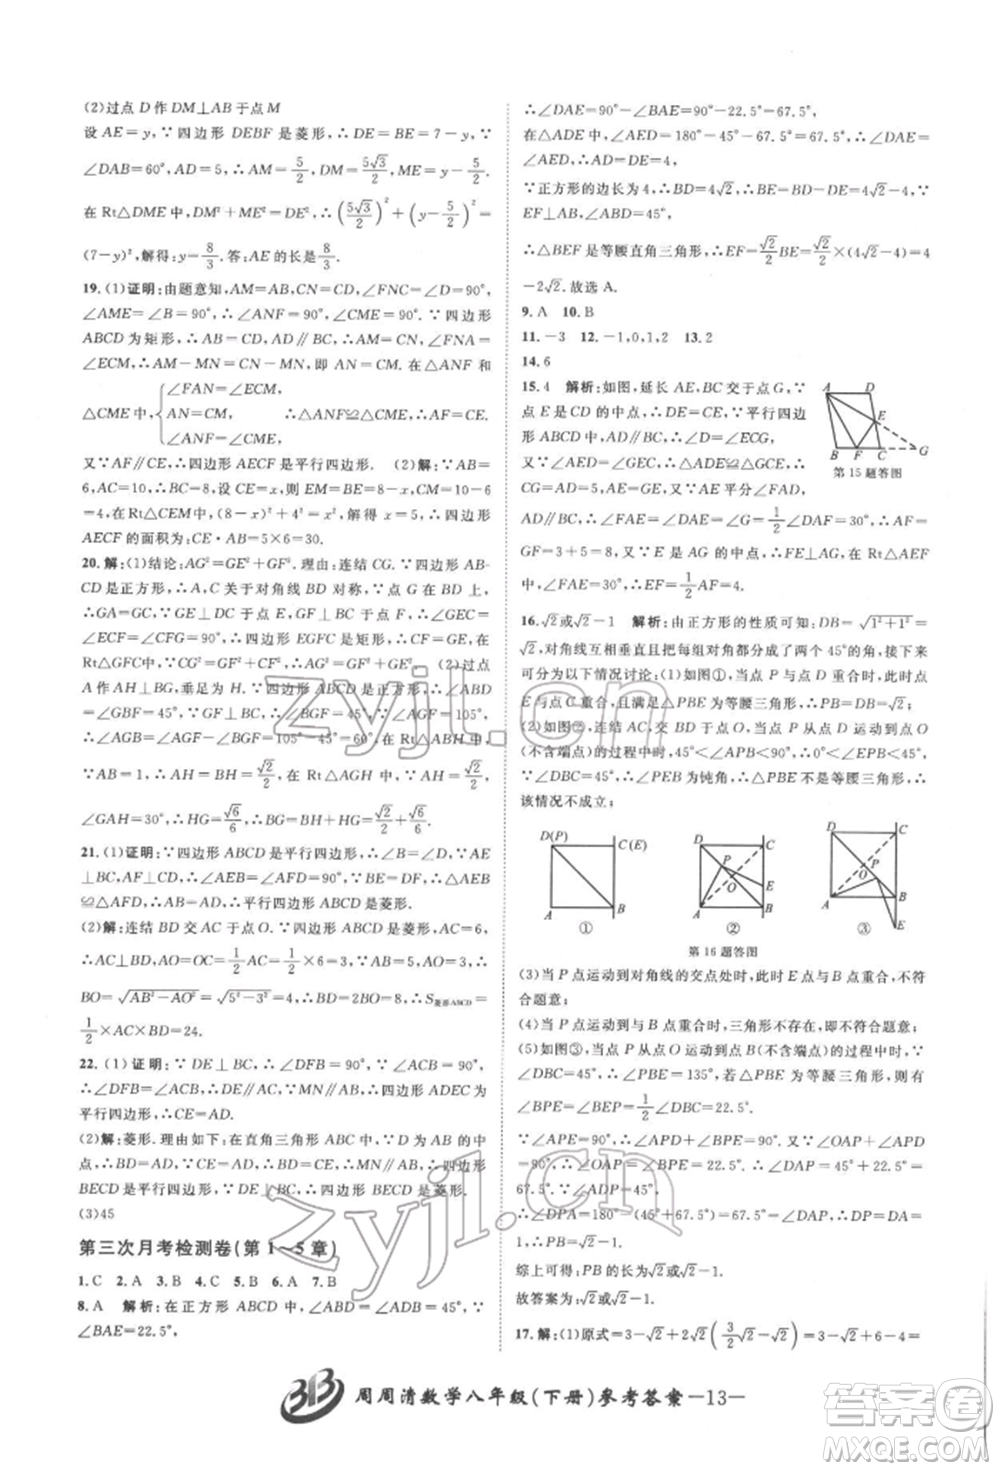 (2)过点 D 作 DM⊥AB 于点 M
设 AE=y,∵四边形 DEBF 是菱形,∴DE=BE=7-y,∵
∠DAB=60°,AD=5,∴AM=5/2,DM=5√3/2,ME=y-5/2,
在 Rt△DME 中,DM²+ME²=DE²,∴(5√3/2)²+(y-5/2)²=
(7-y)²,解得:y=8/3.答:AE 的长是8/3.
19.(1)证明:由题意知,AM=AB,CN=CD,∠FNC=∠D=90°,
∠AME=∠B=90°,∴∠ANF=90°,∠CME=90°,∵四边形
ABCD 为矩形,∴AB=CD,AD∥BC,∴AM=CN,∠FAN=
∠ECM,∴AM-MN=CN-MN,即 AN=CM,在△ANF 和
△CME 中,{∠FAN=∠ECM,
AN=CM,
∠ANF=∠CME,
∴△ANF≌△CME,∴AF=CE.
又∵AF∥CE,∴四边形 AECF 是平行四边形. (2)解:∵AB=
6,AC=10,∴BC=8,设 CE=x,则 EM=8-x,CM=10-6
=4,在 Rt△CEM 中,(8-x)²+4²=x²,解得 x=5,∴四边形
AECF 的面积为:CE·AB=5×6=30.
20.解:(1)结论:AG²=GE²+GF².理由:连结 CG.∵四边形 AB-
CD 是正方形,∴A,C 关于对角线 BD 对称,∵点 G 在 BD 上,
∴GA=GC,∵GE⊥DC 于点 E,GF⊥BC 于点 F,∴∠GEC=
∠ECF=∠CFG=90°,∴四边形 EGFC 是矩形,∴CF=GE,在
Rt△GFC 中,∵CG²=GF²+CF²,∴AG²=GF²+GE². (2)过点
A 作 AH⊥BG,垂足为 H.∵四边形 ABCD 是正方形,∴∠ABD=
∠GBF=45°,∵GF⊥BC,∴∠BGF=45°,∵∠AGF=105°,
∴∠AGB=∠AGF-∠BGF=105°-45°=60°,在 Rt△ABH 中,
∵AB=1,∴AH=BH=√2/2,在 Rt△AHG 中,∵AH=√2/2,
∠GAH=30°,∴HG=√6/6,∴BG=BH+HG=√2/2+√6/6.
21.(1)证明:∵四边形 ABCD 是平行四边形,∴∠B=∠D,∵AE
⊥BC,AF⊥DC,∴∠AEB=∠AFD=90°,又∵BE=DF,∴△AEB
≌△AFD,∴AB=AD,∴平行四边形 ABCD 是菱形.
(2)解:连结 BD 交 AC 于点 O.∵四边形 ABCD 是菱形,AC=6,
∴AC⊥BD,AO=OC=1/2AC=1/2×6=3,∵AB=5,AO=3,∴
BO=√AB²-AO²=√5²-3²=4,∴BD=2BO=8,∴S菱形ABCD=
1/2×AC×BD=24.
22.(1)证明:∵DE⊥BC,∴∠DFB=90°,∵∠ACB=90°,
∴∠DFB=∠ACB,∴AC∥DE,∵MN∥AB,∴四边形 ADEC 是
平行四边形,∴CE=AD.
(2)解:菱形.理由如下:在直角三角形 ABC 中,∵点 D 是 AB 的中
点,∴BD=DC=AD,又∵CE=AD,∴BD=CE,∴四边形
BECD 是平行四边形,又∵DE⊥CB,∴四边形 BECD 是菱形.
(3)45
第三次月考检测卷(第 1~5 章)
1.C 2.A 3.B 4.C 5.B 6.A 7.B
8.A 解析:在正方形 ABCD 中,∠ABD=∠ADB=45°,∵
∠BAE=22.5°,
∴∠DAE=90°-∠BAE=90°-22.5°=67.5°,
在△ADE 中,∠AED=180°-45°-67.5°=67.5°,∴∠DAE=
∠AED,∴AD=DE=4,
∵正方形的边长为 4,∴BD=4√2,∴BE=BD-DE=4√2-4,
∵EF⊥AB,∠ABD=45°,
∴△BEF 是等腰直角三角形,∴EF=√2/2BE=√2/2×(4√2-4)=4
-2√2.故选 A.
9.A 10.B
11.-3 12.-1,0,1,2 13.2
14.6
15.4 解析:如图,延长 AE,BC 交于点 G,∵
点 E 是 CD 的中点,∴DE=CE,∵平行四边
形 ABCD 中,AD∥BC,∴∠D=∠ECG,
又∵∠AED=∠GEC,∴△ADE≌△GCE,∴
CG=AD=5,AE=GE,
又∵AE 平分∠FAD,AD∥BC,∴∠FAE=∠DAE=∠G=1/2∠DAF=30°,∴AF=
GF=3+5=8,又∵E 是 AG 的中点,∴FE⊥AG,在 Rt△AEF
中,∠FAE=30°,∴EF=1/2AF=4.
A D E B F C G
第 15 题答图
16.√2或√2-1 解析:由正方形的性质可知:DB=√1²+1²=
√2,对角线互相垂直且把每组对角都分成了两个 45°的角,下面
可分类进行讨论:(1)如图①,当 P,D 重合时,此时点 C 与点
E 重合,且满足△PBE 为等腰三角形,此时 PB=DB=√2,
(2)如图②,连结 AC,交 BD 于点 O,当点 P 从点 D 运动到点 O
(不含端点)的过程中时,45°<∠APB<90°,∴∠EPB<45°,
∵∠DBC=45°,∴∠PEB 为钝角,∴△PBE 不是等腰三角形,∴
该情况不成立;
D(P) C(E) A B ①
D C P O E A B ②
D C P O A B E ③
第 16 题答图
(3)当 P 点运动到对角线的交点处时,此时 E 点与 B 点重合,不符
合题意;
(4)当 P 点运动到与 B 点重合时,三角形不存在,即不符合题意;
(5)如图③,当 P 点从点 O 运动到点 B(不含端点)的过程中时,∵
∠DBC=45°,∴∠PBE=135°,∵△PBE 为等腰三角形,则有
∠BPE=∠BEP=1/2∠DBC=22.5°,
∵∠APE=90°,∴∠APB=67.5°,又∵∠OAP+∠APO=
90°=∠OAP+∠DAP=45°+∠OAP=
67.5°,∴∠APO=∠DAP=67.5°,∴DP=DA=
1,
综上可得:PB=√2或√2-1,
故答案为√2或√2-1.
17.解:(1)原式=3-√2+2√2(3/2√2-√2)=3-√2+
周周清数学八年级(下册)参考答案—13—
zyjl.cn
zyjl.cn
答案圈
MXQE.COM